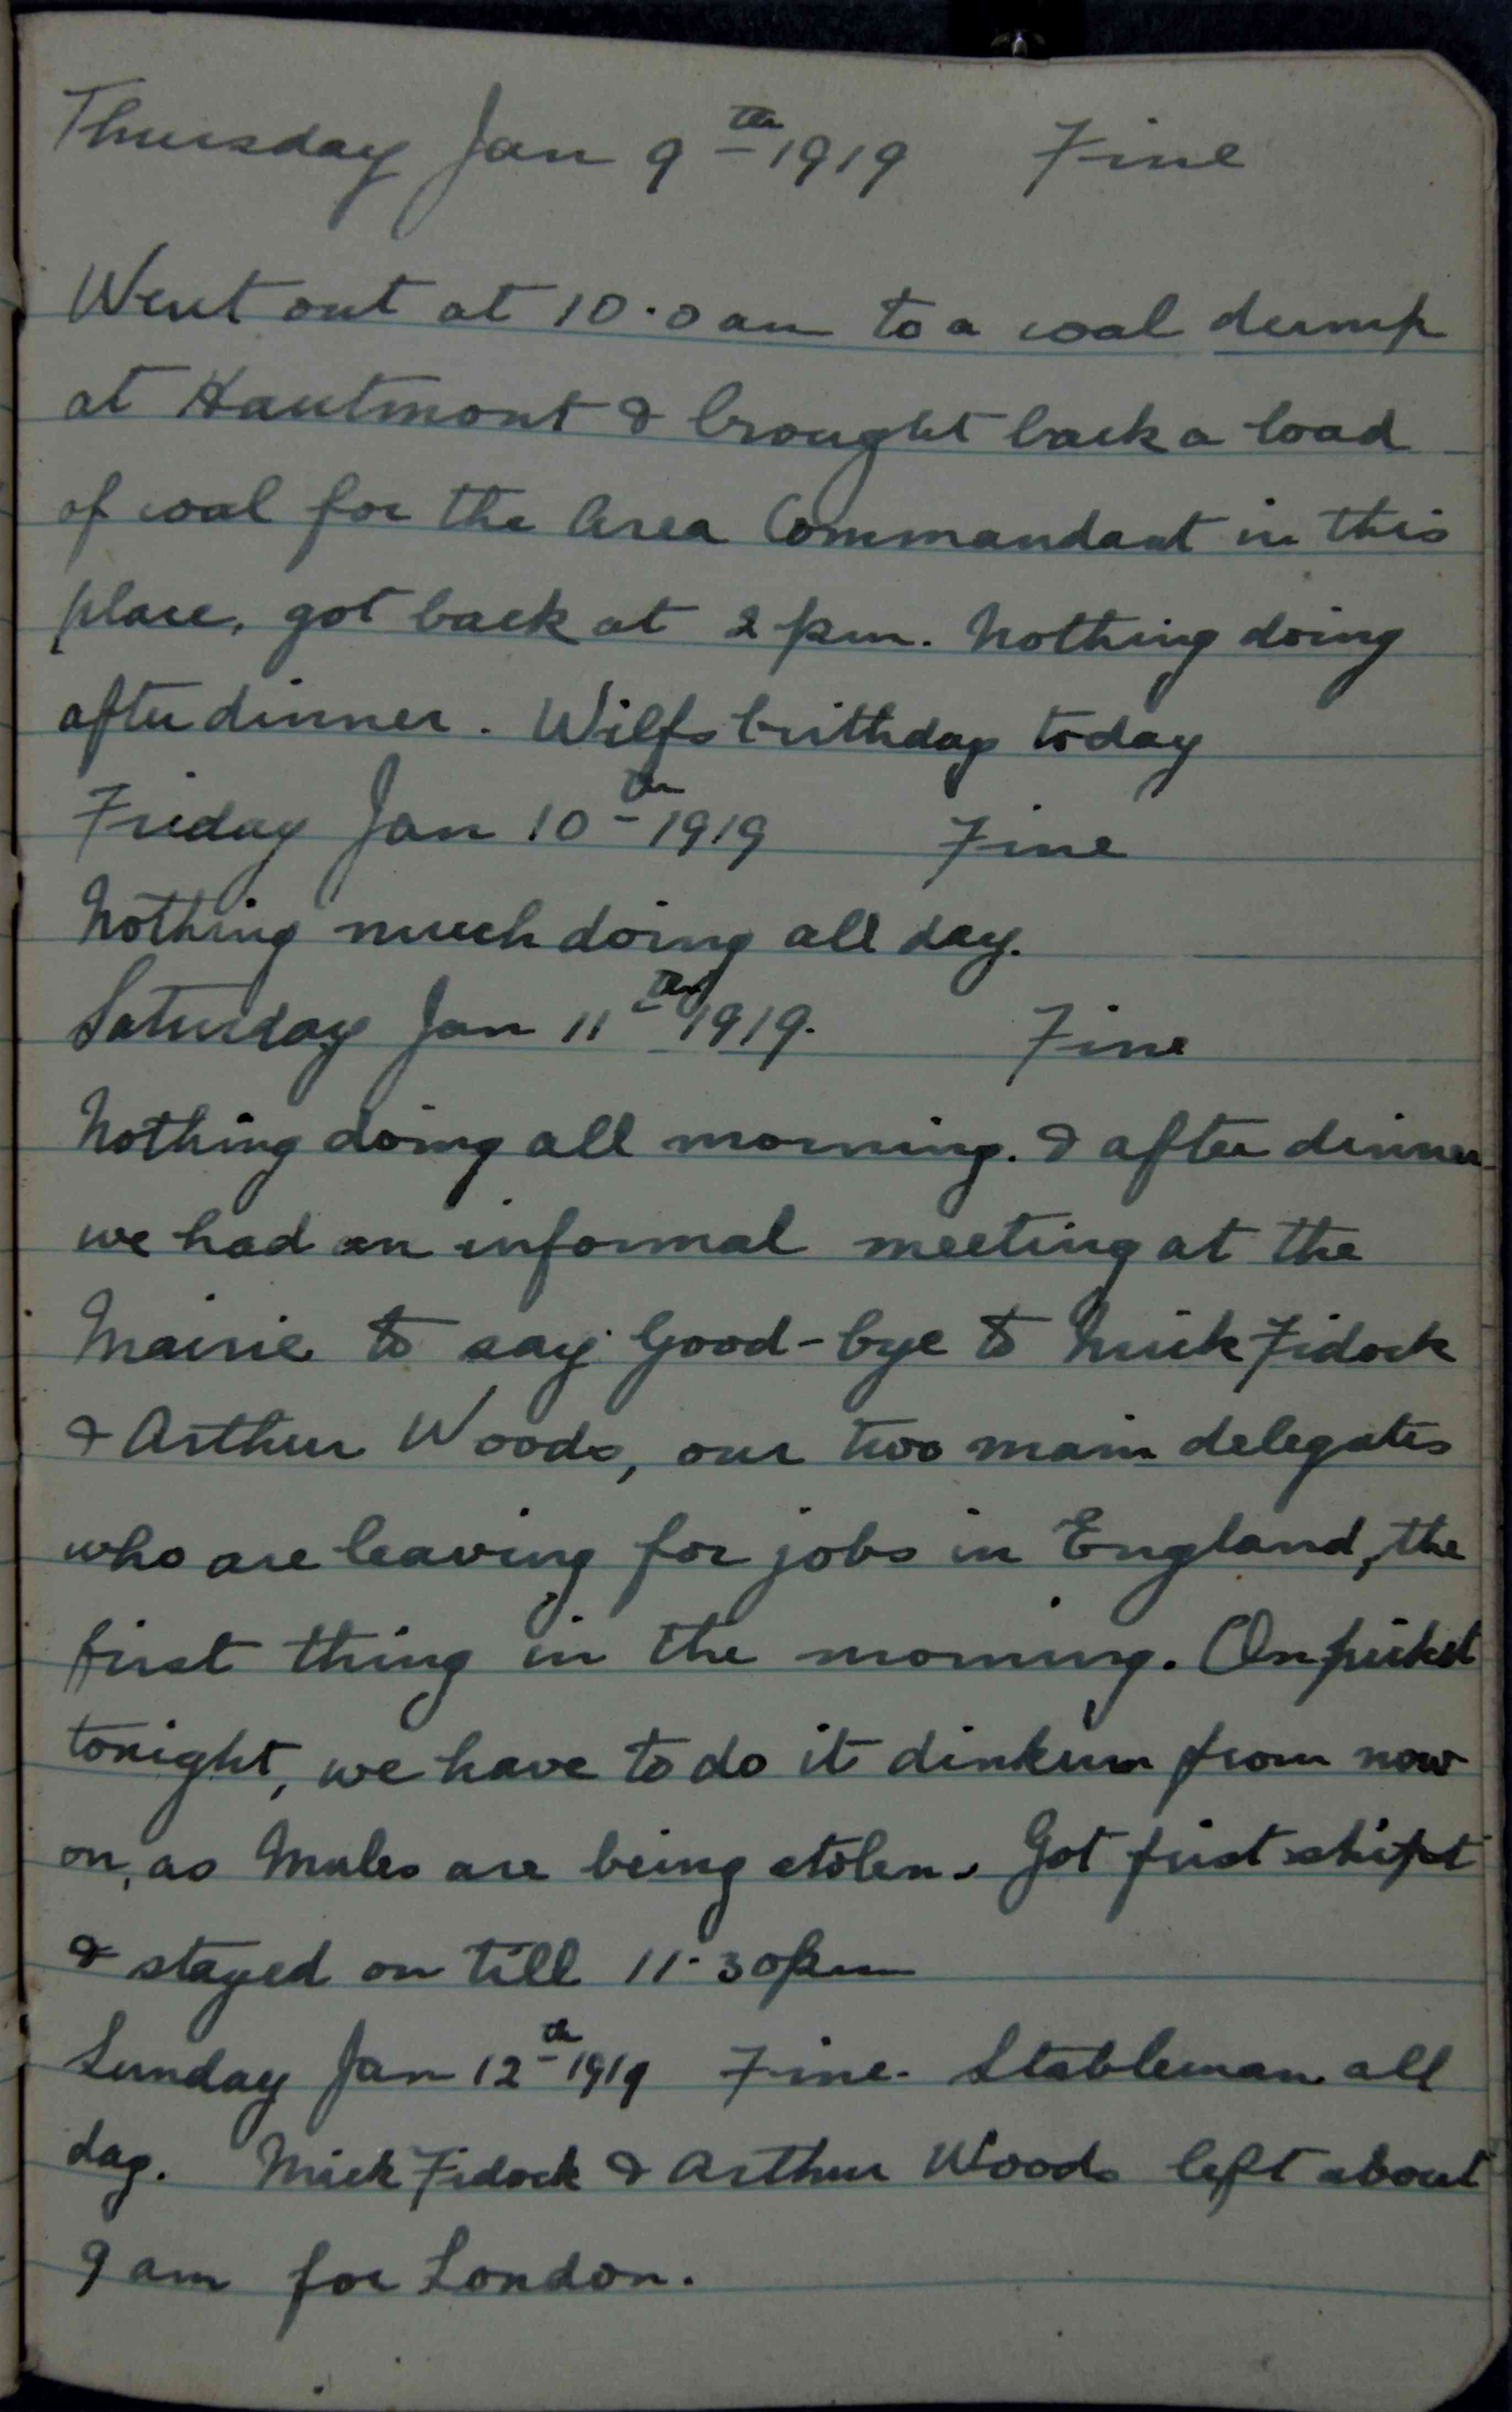 Thursday Jan 9th 1919 Fine
Went out at 10.0 am to a coal dump
at Hautmont & brought back a load
of coal for the Area Commandant in this
place, got back at 2 pm. Nothing doing
after dinner. Wilfs birthday today
Friday Jan 10th 1919 Fine
Nothing much doing all day.
Saturday Jan 11th 1919. Fine
Nothing doing all morning. & after dinner
we had an informal meeting at the
Mairie to say Good-bye to Mick Fidock
& Arthur Woods, our two main delegates
who are leaving for jobs in England, the
first thing in the morning. On picket
tonight, we have to do it dinkum from now
on, as Mules are being stolen. Got first shift
& stayed on till 11.30 pm
Sunday Jan 12th 1919 Fine. Stableman all
day. Mick Fidock & Arthur Woods left about
9 am for London.